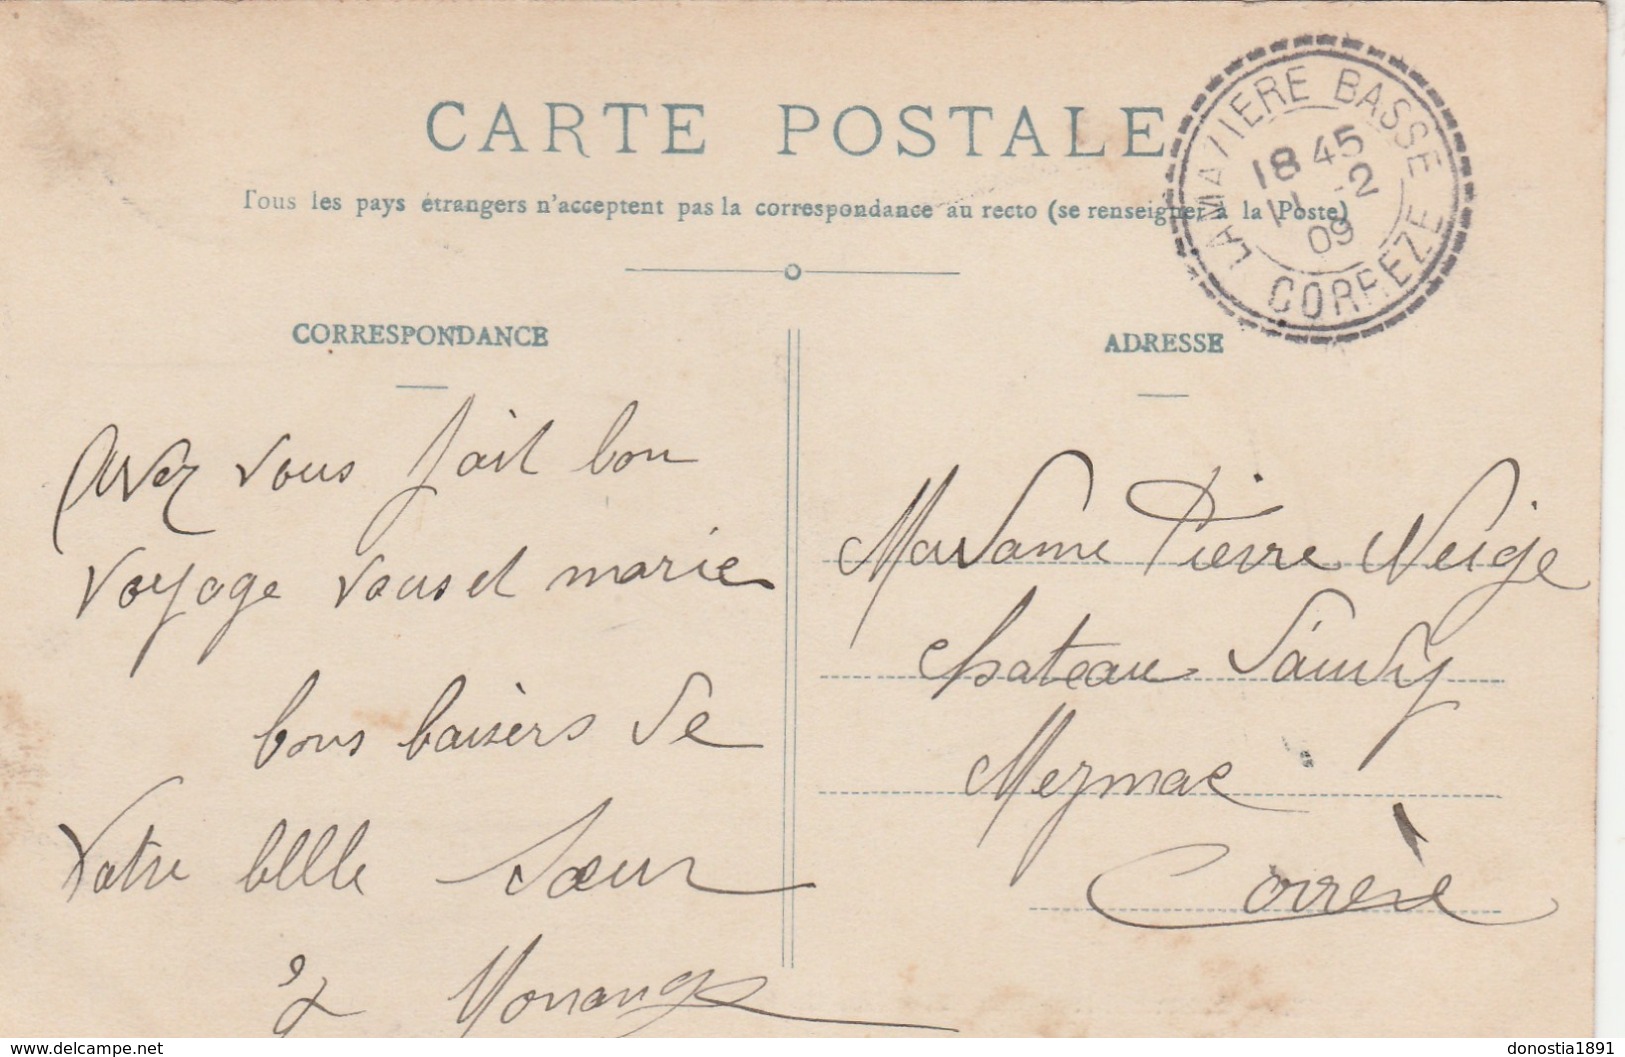 CARTE POSTALE
Tous les pays étrangers n'acceptent pas la correspondance au recto (se renseigner à la Poste)
LAMAZIERE BASSE
18 45
11 -2
09
CORREZE
CORRESPONDANCE
Avez vous fait bon
voyage vous et marie
bons baisers de
Votre bellle soeur
ADRESSE
Madame Pierre Neige
chateau
Meymac
Corrèze
www.delcampe.net
donostia1891